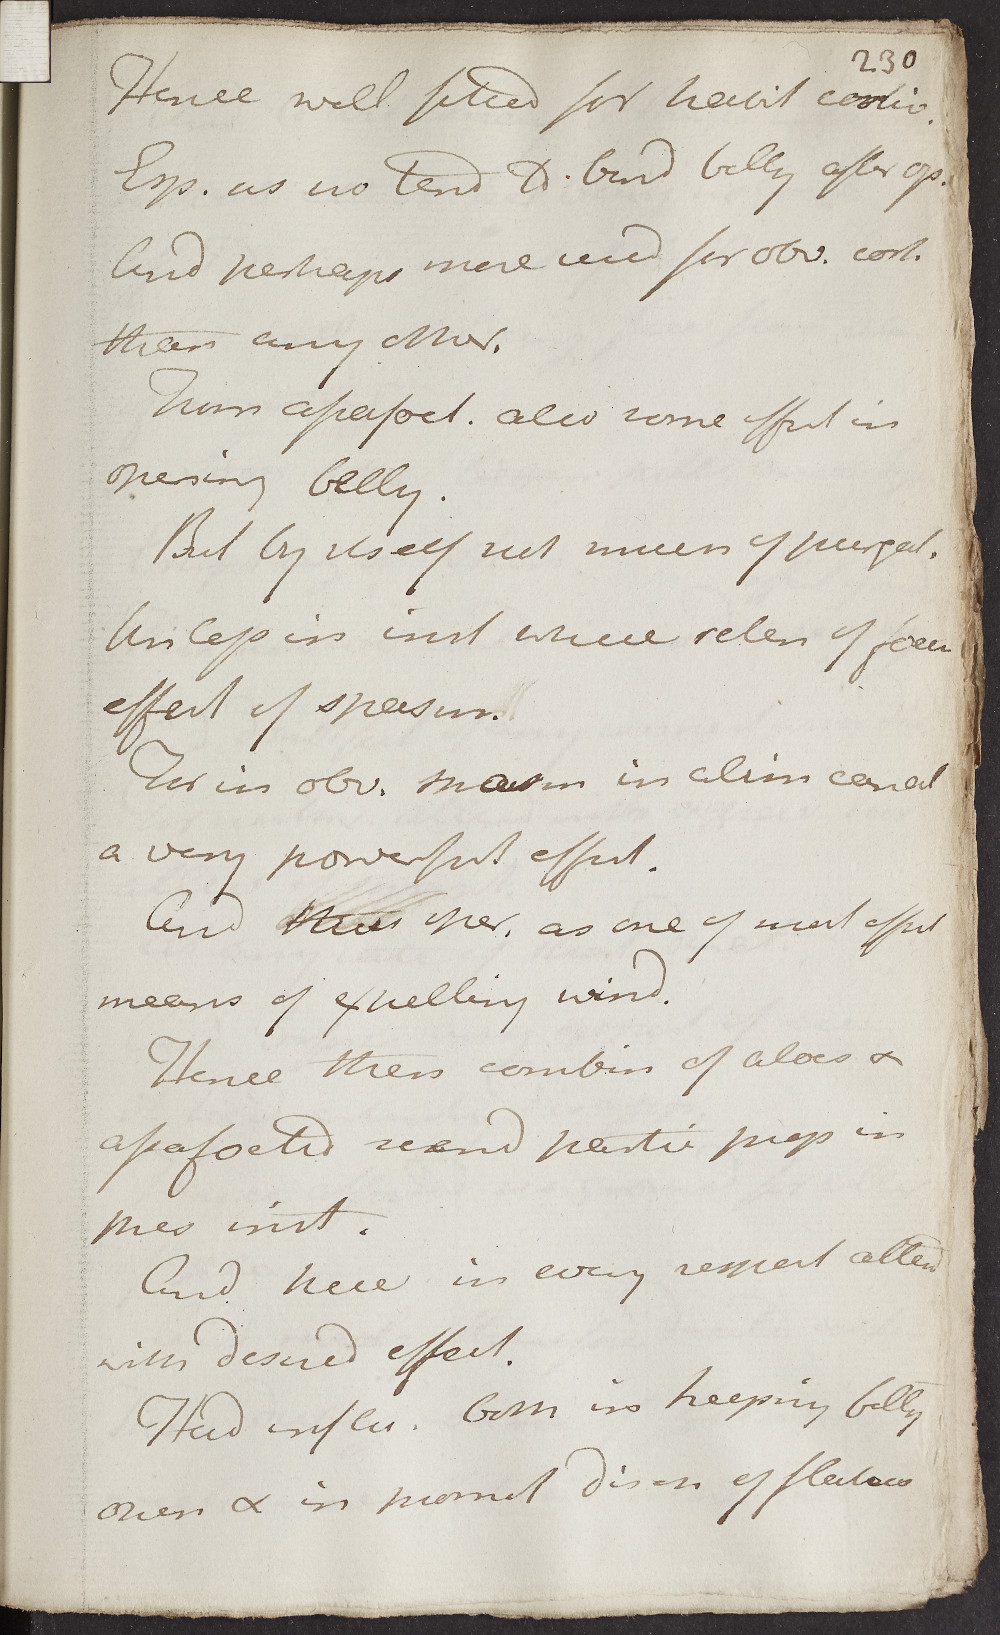 230
Hence well fitted for habit costiv.
Esp. as no tend to bind belly after op.
And perhaps more used for obv. cost.
than any other.
From assafoet. also some effect in
opening belly.
But by itself not much of purgat.
Unless in inst where reten of foeces
effect of spasm.
For in obv. spasm in alim canal
a very powerful effect.
And thus oper. as one of most effect
means of expelling wind.
Hence then combin of aloes &
assafoetid seemd partic prop in
pres inst.
And here in every respect attend
with desired effect.
Had influ. both in keeping belly
open & in promot disch of flatus